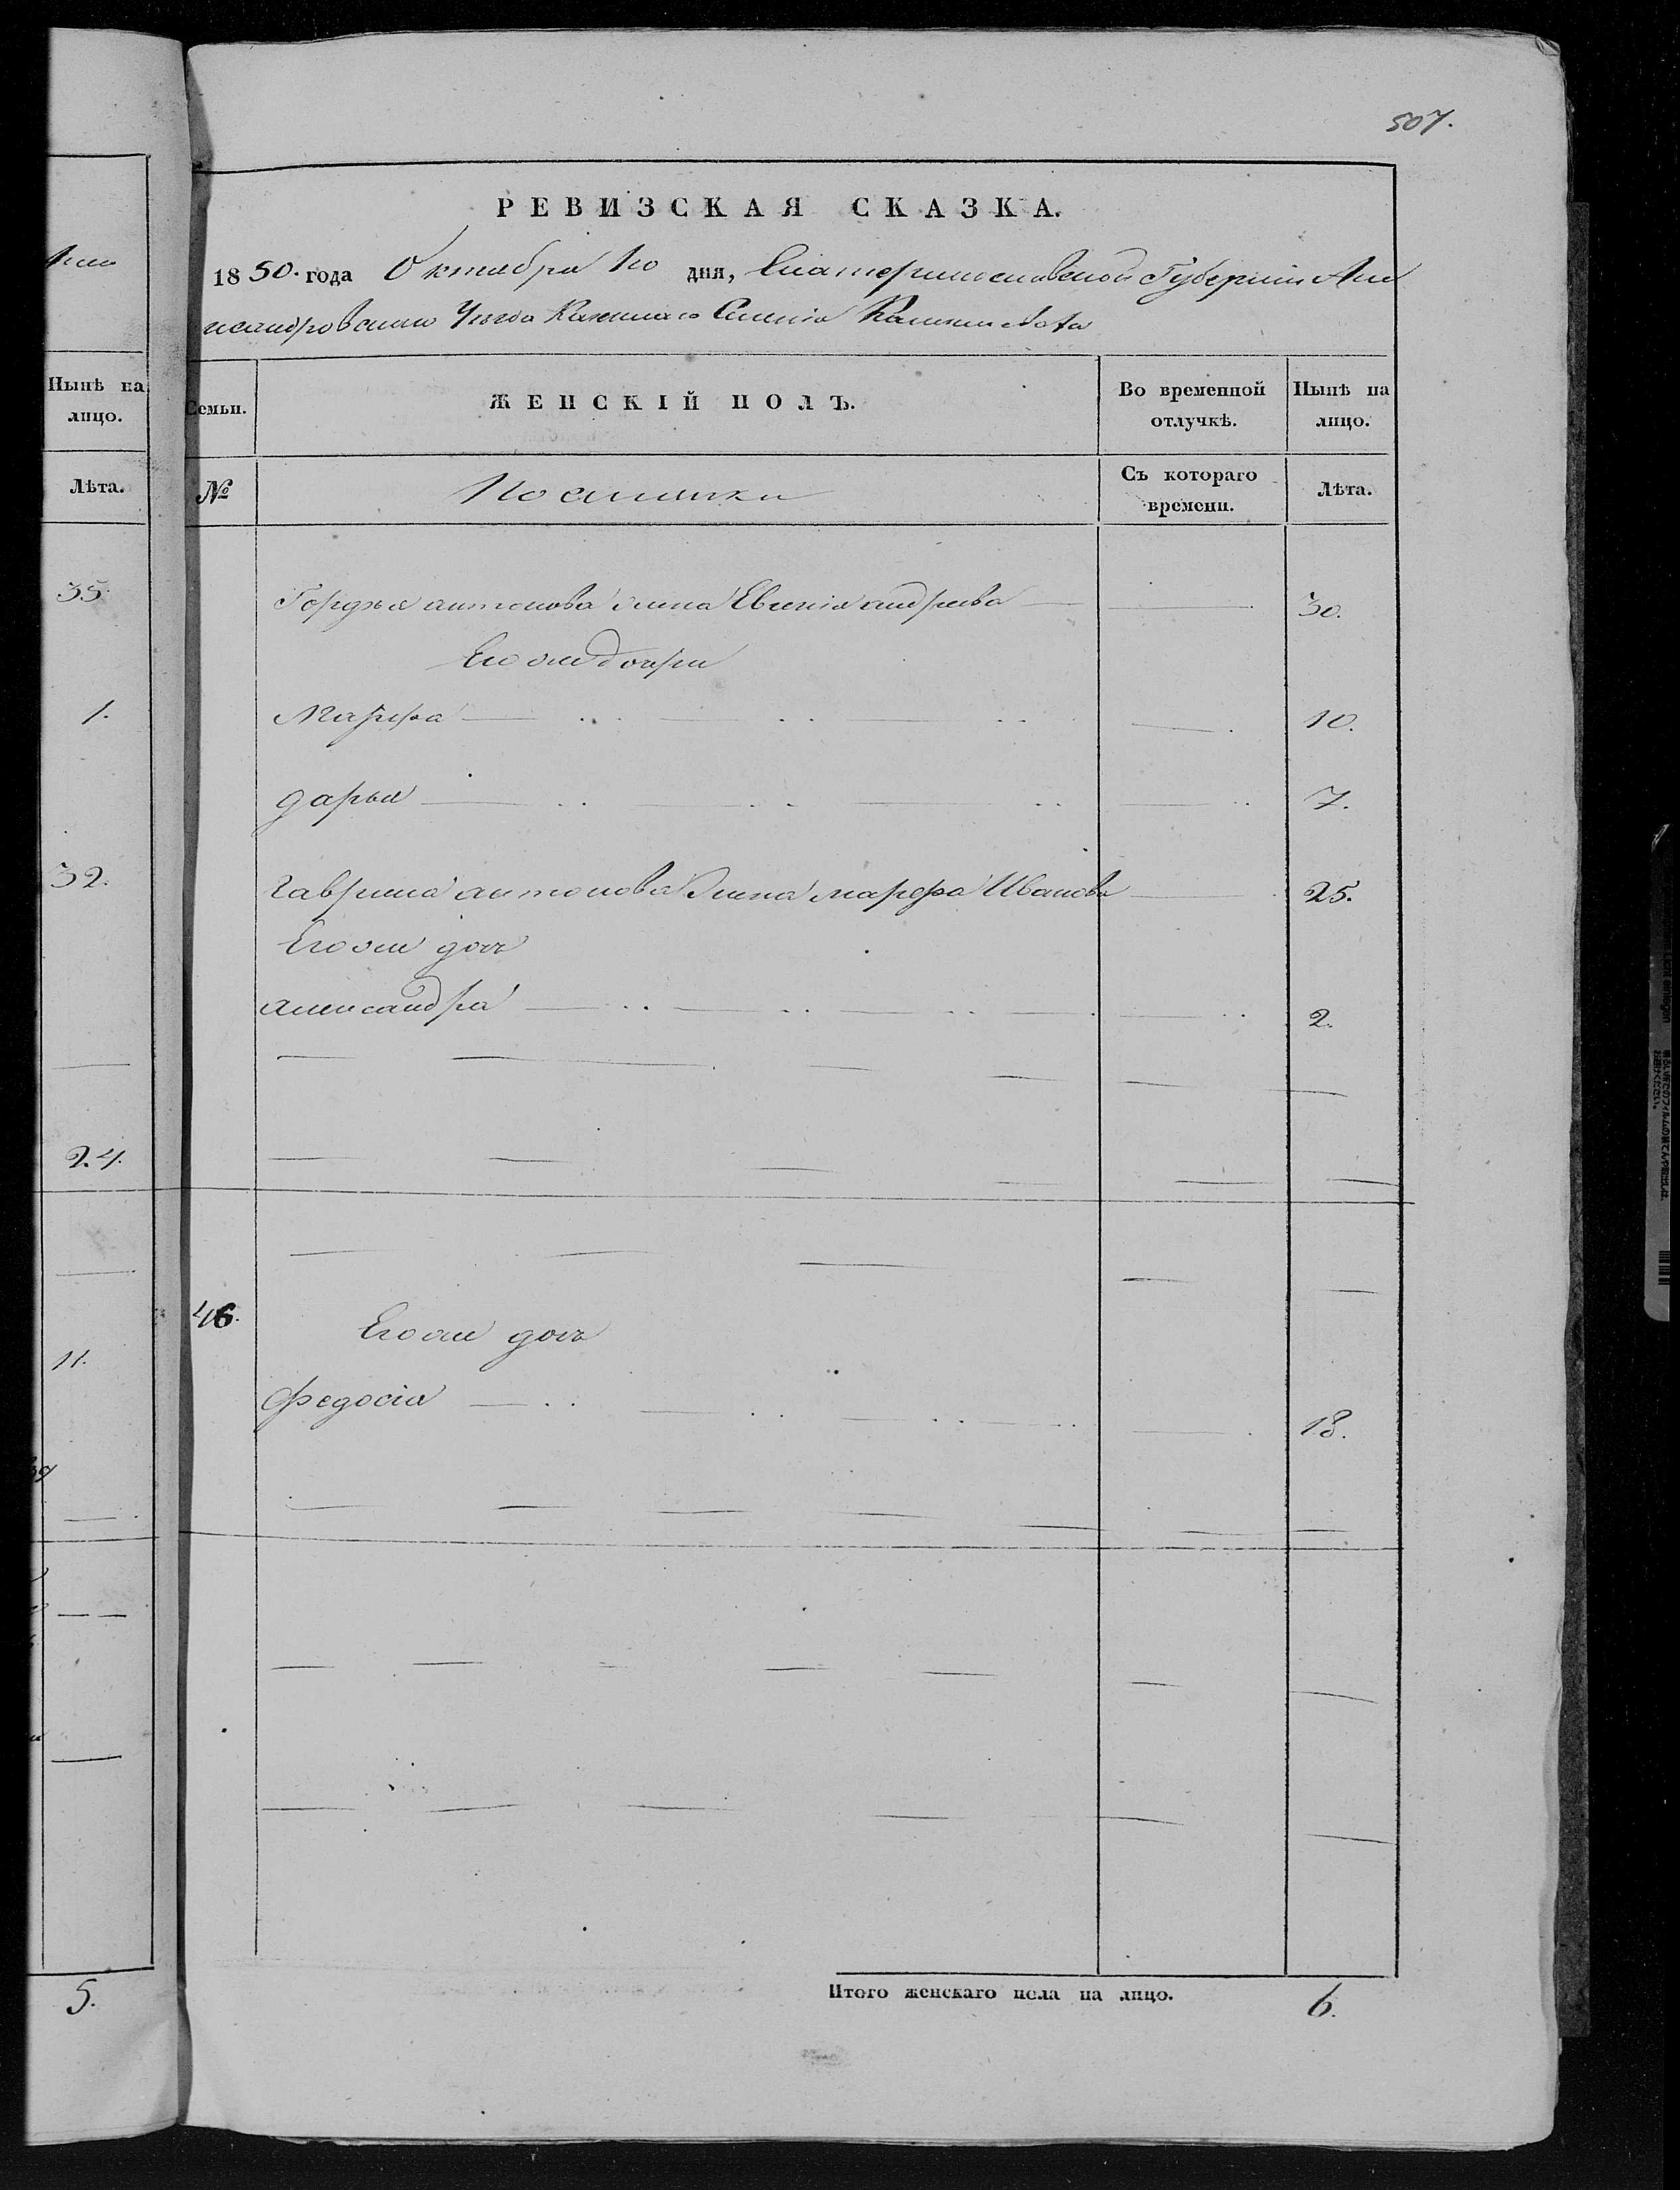 507.
РЕВИЗСКАЯ СКАЗКА.
1850. года Октября 10 дня, Екатеринославской Губернии Алек
сандровскаго Уезда Казеннаго Селенія
Нынѣ на лицо.
Лѣта.
35.
1.
32.
24.
11.
5.
Семьи. ЖЕНСКІЙ ПОЛЪ. Во временной отлучкѣ. Нынѣ на лицо.
№ Поселянки Съ котораго времени. Лѣта.
Гордѣя антонова жена Евгенія андреева 30.
Его же дочери
Марфа 10.
дарья 7.
гаврила антонова жена марфа Иванова 25.
Его же дочь
александра 2.
46. Его же дочь
Федосія 18.
Итого женскаго пола на лицо. 6.